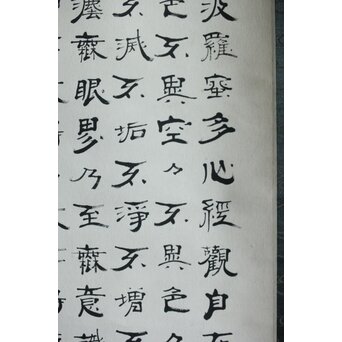 波羅蜜多心經觀自在
色不異空々不異色々
不滅不垢不淨不增不
塵無眼界乃至無意識